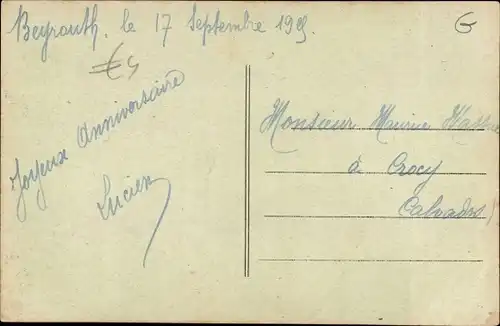 Beyrouth, le 17 Septembre
G
€4
Joyeux Anniversaire
Lucien
Monsieur Maurice
à Crocy
Calvados